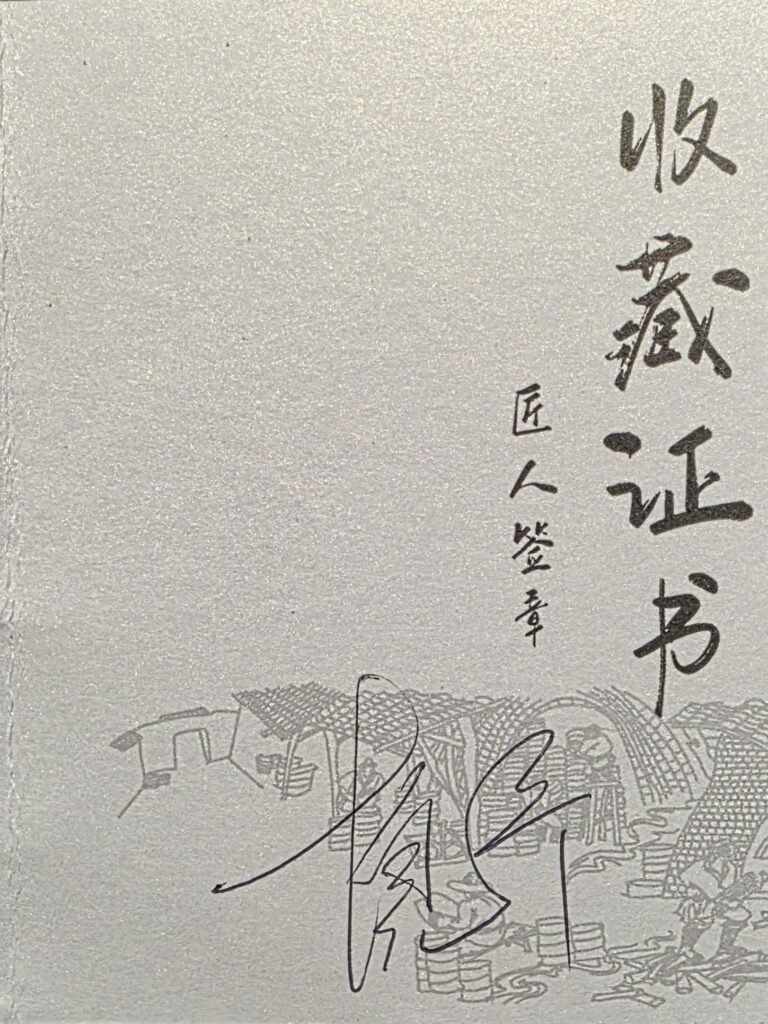 收藏证书
匠人签章